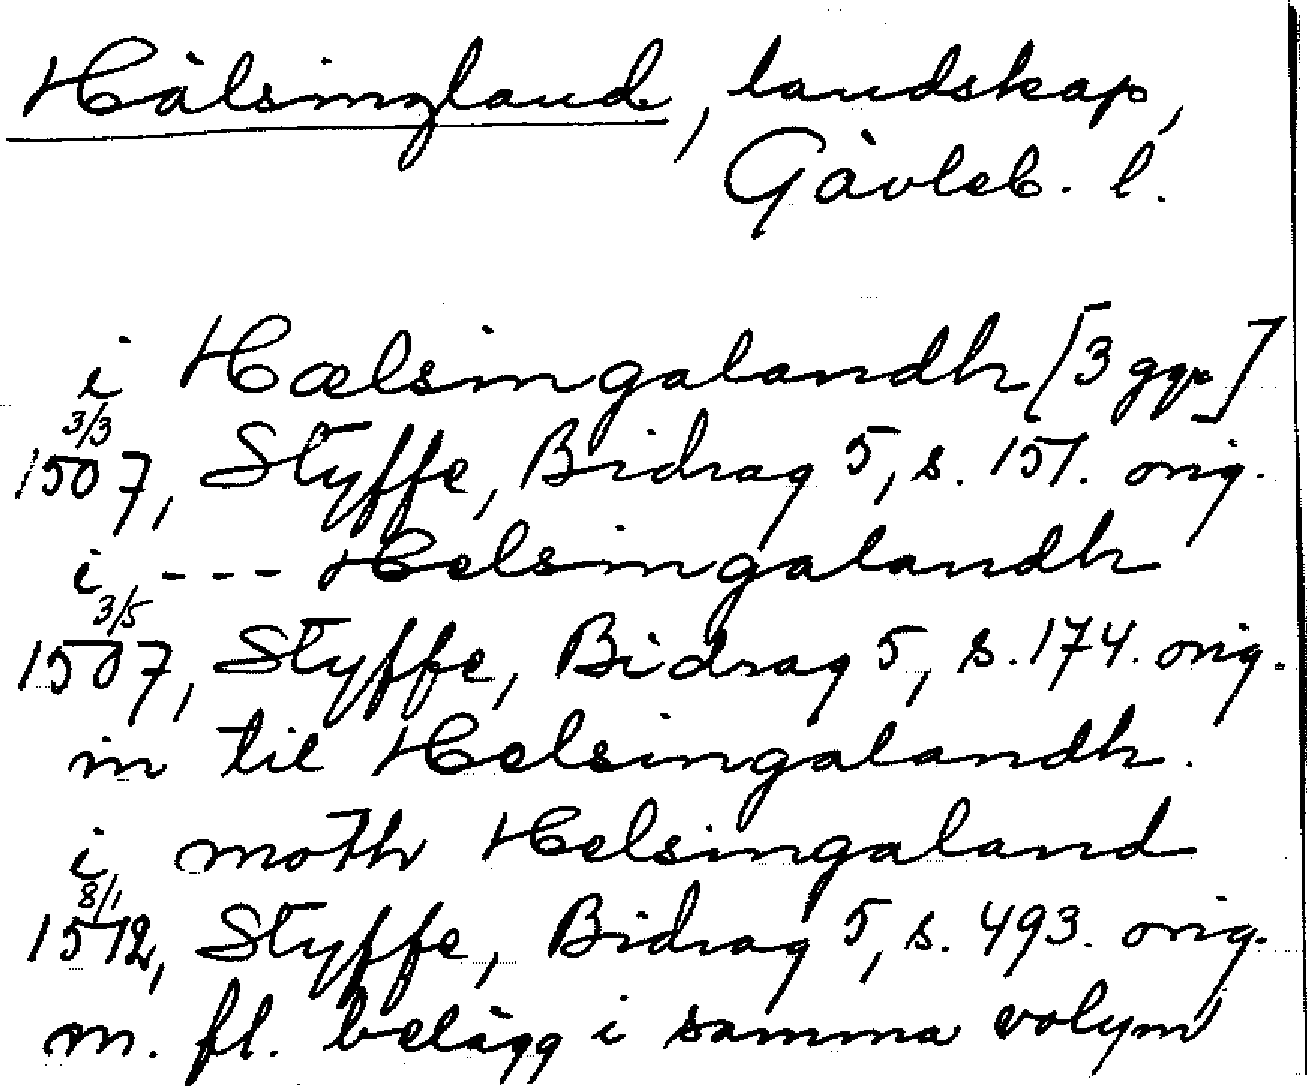 Hälsingland, landskap,
Gävleb. l.
i Hælsingalandh [3 ggr]
3/3
1507, Styffe, Bidrag 5, s. 151. orig.
i --- Helsingalandh
3/5
1507, Styffe, Bidrag 5, s. 174. orig.
in til Helsingalandh.
i moth Helsingaland
8/1
1512, Styffe, Bidrag 5, s. 493. orig.
m. fl. belägg i samma volym